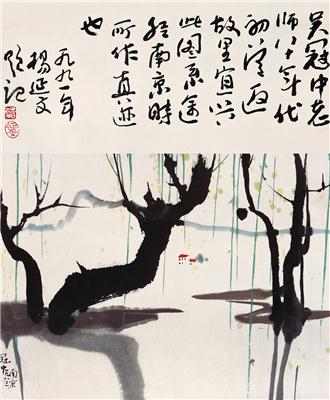 吴冠中老
师八十年代
初返
故里宜兴
此图系途
经南京时
所作真迹
也
一九九一年
杨延文
题记
冠中
南京